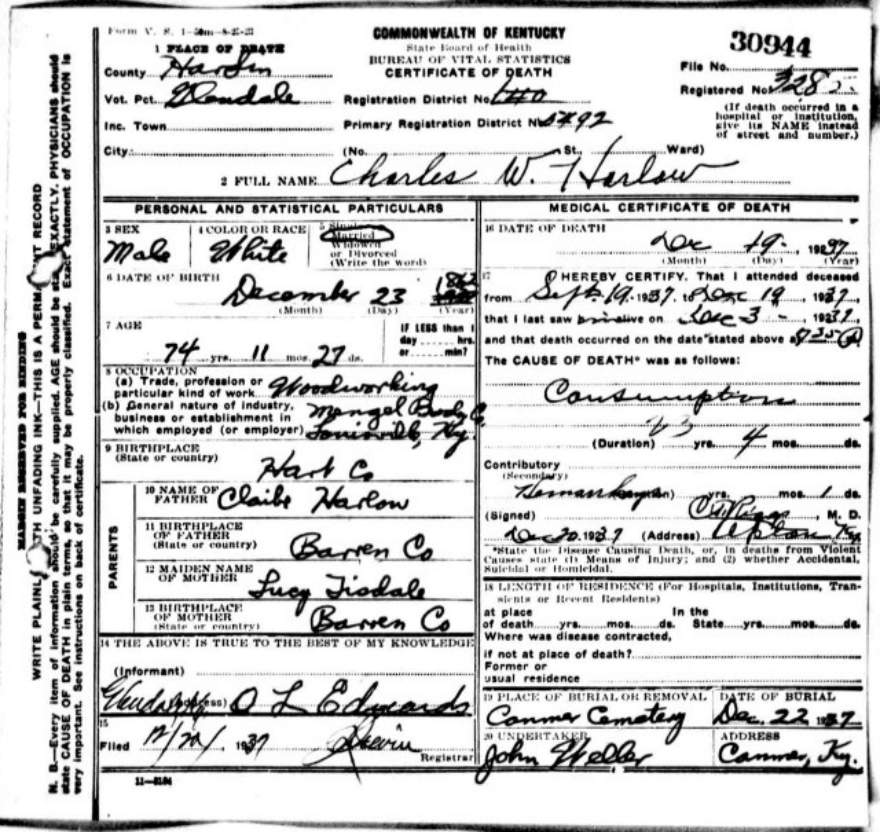 Form V. S. 1-50m-8-21-23
COMMONWEALTH OF KENTUCKY
State Board of Health
BUREAU OF VITAL STATISTICS
CERTIFICATE OF DEATH
30944
File No.
Registered No. 328
(If death occurred in a hospital or institution, give its NAME instead of street and number.)
1 PLACE OF DEATH
County Hardin
Vot. Pct. Glendale
Inc. Town
City:
Registration District No.
Primary Registration District No. 5492
(No. St., Ward)
2 FULL NAME Charles W. Harlow
PERSONAL AND STATISTICAL PARTICULARS
3 SEX
Male
4 COLOR OR RACE
White
5 Single
Married
Widowed
or Divorced
(Write the word)
6 DATE OF BIRTH
December 23 1862
(Month) (Day) (Year)
7 AGE
74 yrs. 11 mos. 27 ds.
IF LESS than 1
day hrs.
or min?
8 OCCUPATION
(a) Trade, profession or
particular kind of work Woodworking
(b) General nature of industry,
business or establishment in
which employed (or employer) Mengel Body Co
Louisville, Ky.
9 BIRTHPLACE
(State or country)
Hart Co
PARENTS
10 NAME OF
FATHER Claibe Harlow
11 BIRTHPLACE
OF FATHER
(State or country)
Barren Co
12 MAIDEN NAME
OF MOTHER
Lucy Tisdale
13 BIRTHPLACE
OF MOTHER
(State or country)
Barren Co
14 THE ABOVE IS TRUE TO THE BEST OF MY KNOWLEDGE
(Informant)
O L Edwards
15
Filed 1937
Registrar
11-3184
MEDICAL CERTIFICATE OF DEATH
16 DATE OF DEATH
Dec 19
(Month) (Day) (Year)
17 I HEREBY CERTIFY, That I attended deceased
from Sept. 19 1937 to Dec 19, 1937
that I last saw alive on Dec 3 - , 1937
and that death occurred on the date stated above at
The CAUSE OF DEATH* was as follows:
Consumption
(Duration) yrs. 4 mos. ds.
Contributory
(Secondary)
yrs. mos. 1 ds.
(Signed) , M. D.
Dec 20 1937 (Address) Upton Ky.
*State the Disease Causing Death, or, in deaths from Violent
Causes state (1) Means of Injury; and (2) whether Accidental,
Suicidal or Homicidal.
18 LENGTH OF RESIDENCE (For Hospitals, Institutions, Tran-
sients or Recent Residents)
at place In the
of death yrs. mos. ds. State yrs. mos. ds.
Where was disease contracted,
if not at place of death?
Former or
usual residence
19 PLACE OF BURIAL OR REMOVAL
Canmer Cemetery
DATE OF BURIAL
Dec. 22 1937
20 UNDERTAKER
John Weller
ADDRESS
Canmer, Ky.
MARGIN RESERVED FOR BINDING
WRITE PLAINLY WITH UNFADING INK—THIS IS A PERMANENT RECORD
N. B.—Every item of information should be carefully supplied. AGE should be stated EXACTLY. PHYSICIANS should
state CAUSE OF DEATH in plain terms, so that it may be properly classified. Exact statement of OCCUPATION is
very important. See instructions on back of certificate.